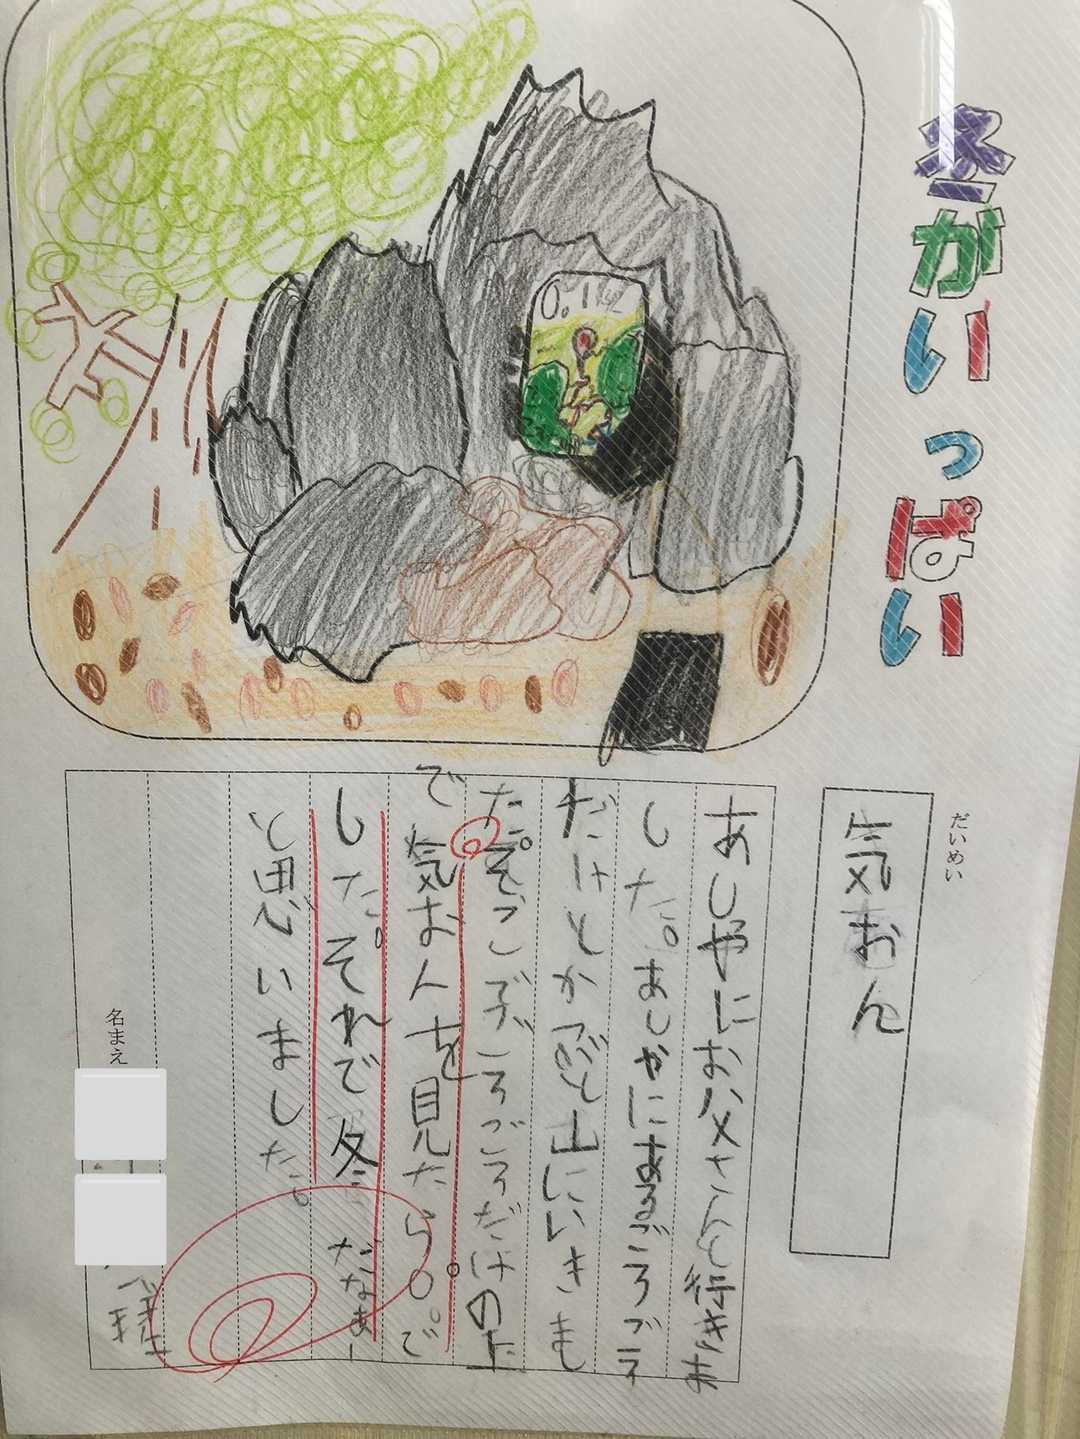 冬がいっぱい
0.1℃
だいめい
気おん
あしやにお父さんと行きま
した。あしやにあるごろごろ
だけとかざと山にいきま
た。そこごろごろだけの上
で気おんを見たら0°。で
した。それで冬だなあー
と思いました。
名まえ